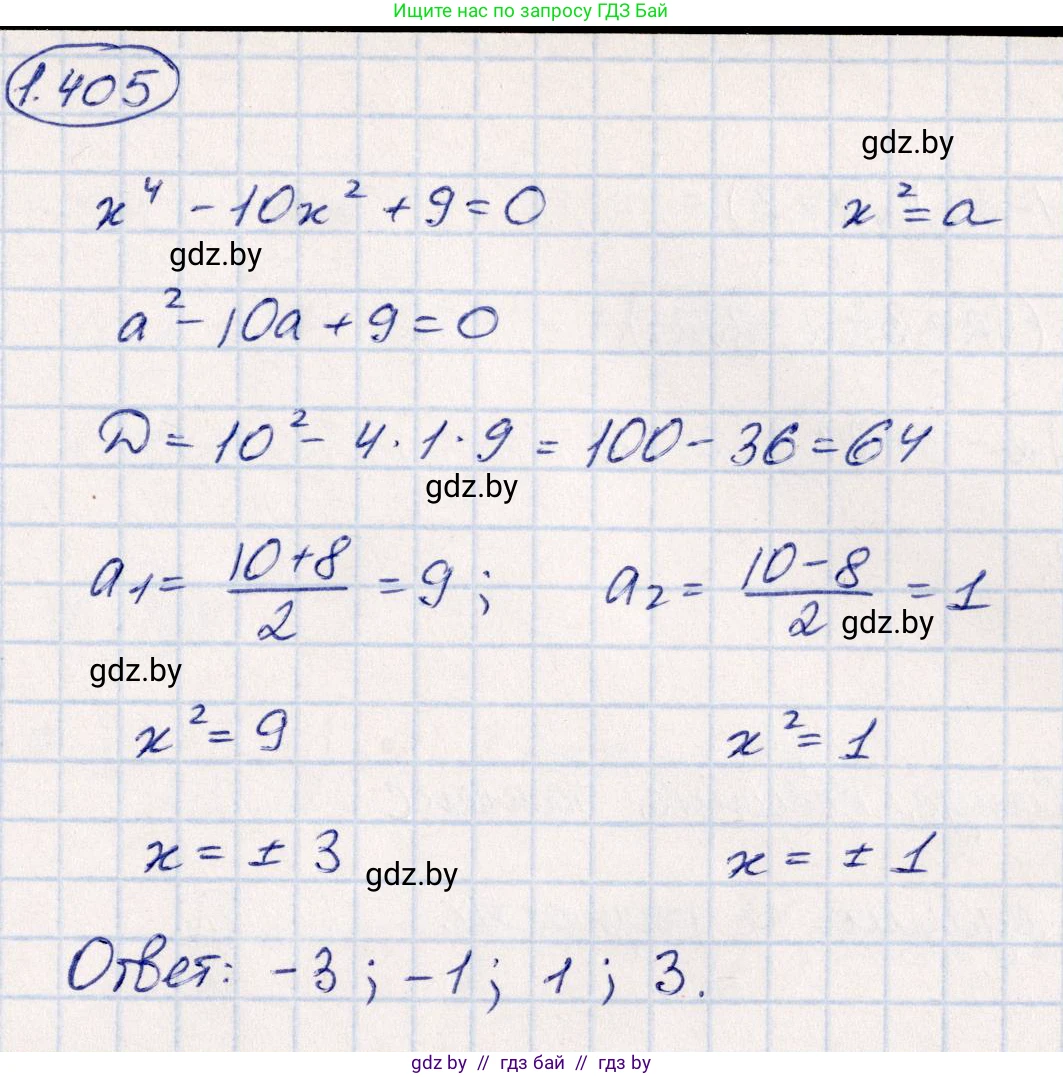 Ищите нас по запросу ГДЗ Бай
1.405
gdz.by
x⁴ - 10x² + 9 = 0 x² = a
gdz.by
a² - 10a + 9 = 0
D = 10² - 4 · 1 · 9 = 100 - 36 = 64
gdz.by
a₁ = (10+8)/2 = 9 ; a₂ = (10-8)/2 = 1
gdz.by
gdz.by
x² = 9 x² = 1
x = ± 3 x = ± 1
gdz.by
Ответ: -3 ; -1 ; 1 ; 3.
gdz by // гдз бай // гдз by